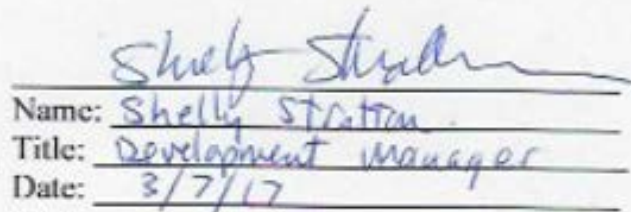 Shelly Stratton
Name: Shelly Stratton
Title: Development Manager
Date: 3/7/17